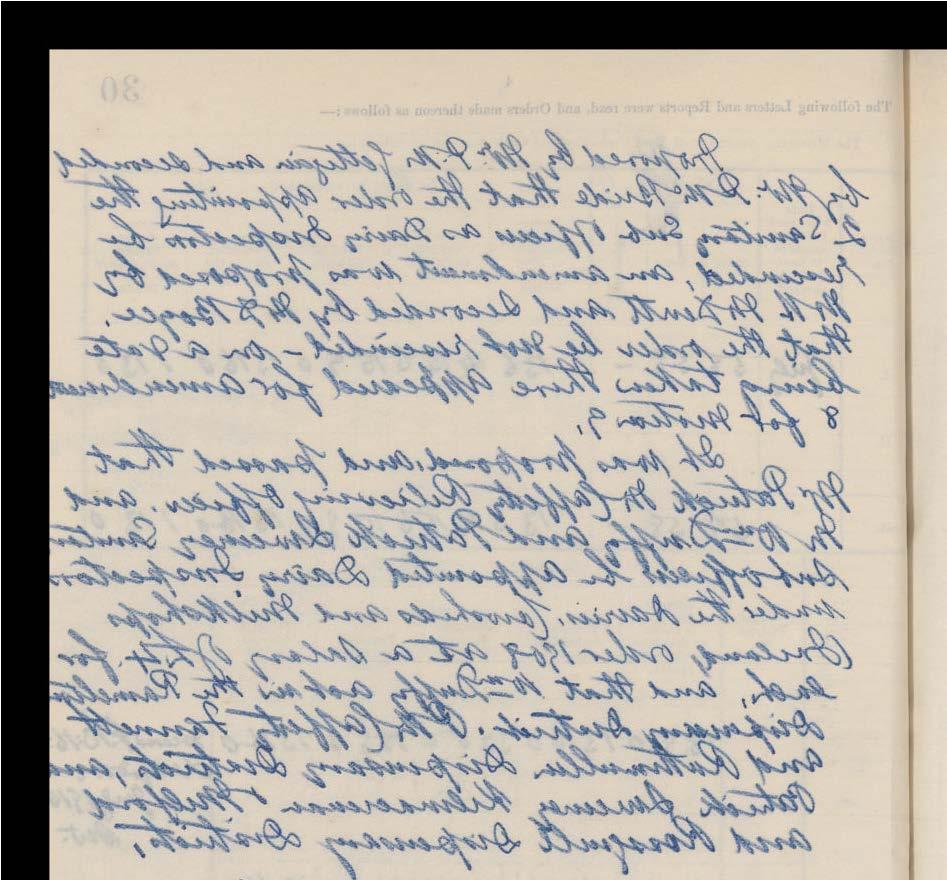 30
The following Letters and Reports were read, and Orders made thereon as follows:—
Proposed by Mr. J. McFettigan and seconded
by Mr. J McBride that the order appointing the
2 Sanitary Sub Officers as Dairy Inspectors be
rescinded, an amendment was proposed by
Mr and seconded by Mr J Boyce.
that the order be not rescinded - on a vote
being taken there appeared for amendment
8 for motion 9.
It was proposed and passed that
Mr Patrick McCafferty Relieving Officer and
Mr Wm Duffy and Patrick Sweeney Sanitary
Sub officers be appointed Dairy Inspectors
under the Dairies, Cowsheds and Milkshops
Ireland, order 1908 at a salary of £4 for
each, and that Wm Duffy act in the Ramelton
Dispensary District. P McCafferty Fannett
and Rathmullan Dispensary Districts, and
Patrick Sweeney Kilmacrenan & Milford
and Rosguill Dispensary Districts,